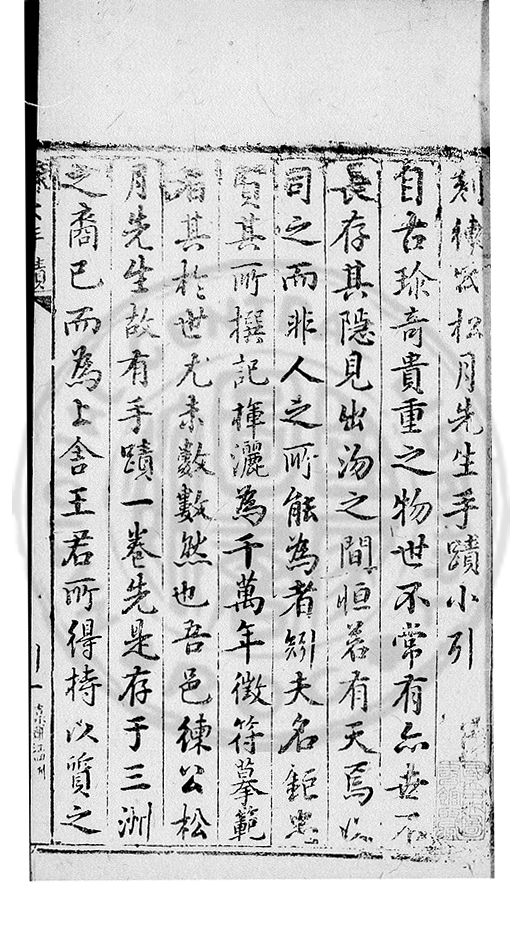 刻練公松月先生手蹟小引
自古珍奇貴重之物世不常有亦世不
長存其隱見出沕之間恒若有天焉以
司之而非人之所能為者矧夫名鉅
賢其所撰記揮灑為千萬年徵符摹範
者其於世尤未數數然也吾邑練公松
月先生故有手蹟一卷先是存于三洲
之裔已而為上舍王君所得持以質之